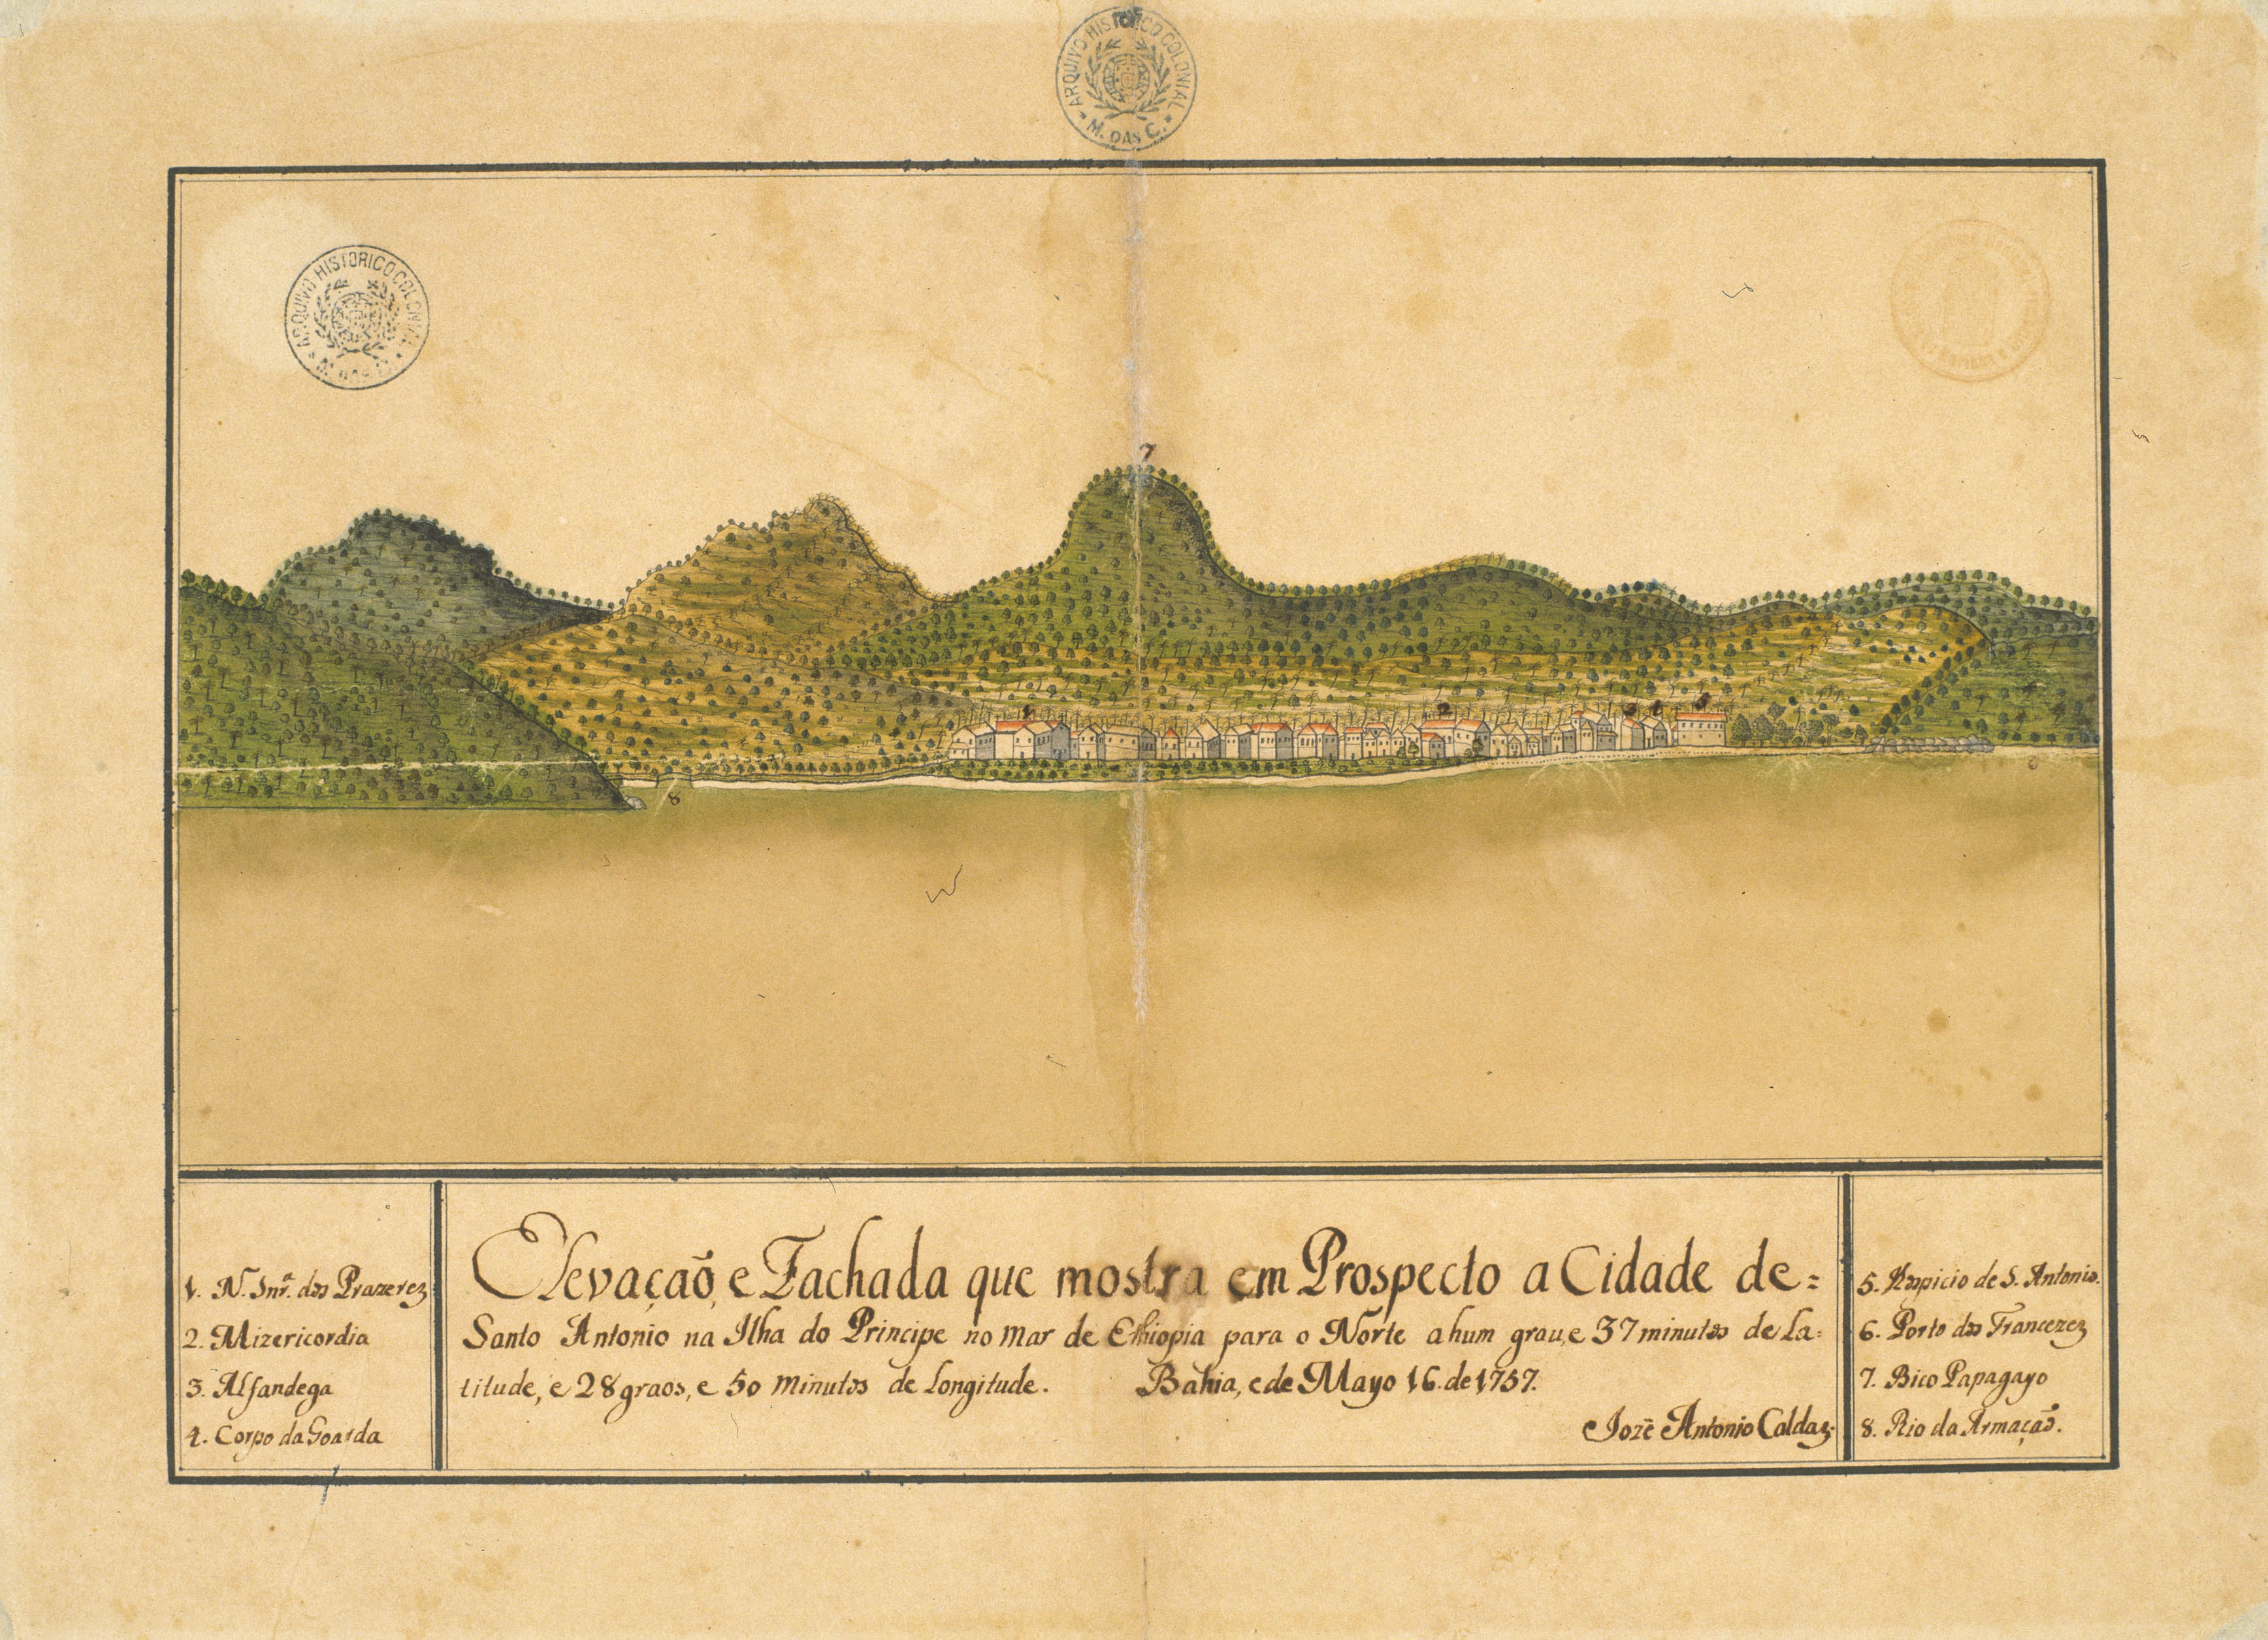 ARQUIVO HISTORICO COLONIAL
M. DAS C.
ARQUIVO HISTORICO COLONIAL
M. DAS C.
7
1
2
3
4
5
6
8
1. N. Snrª. dos Prazerez
2. Mizericordia
3. Alfandega
4. Corpo da Goarda
Elevação, e Fachada que mostra em Prospecto a Cidade de=
Santo Antonio na Ilha do Principe no mar de Ethiopia para o Norte a hum grau, e 37 minutos de La=
titude, e 28 graos, e 50 minutos de Longitude. Bahia, e de Mayo 16. de 1757.
Jozé Antonio Caldaz.
5. Hospicio de S. Antonio.
6. Porto dos Francezez
7. Bico Papagayo
8. Rio da Armação.